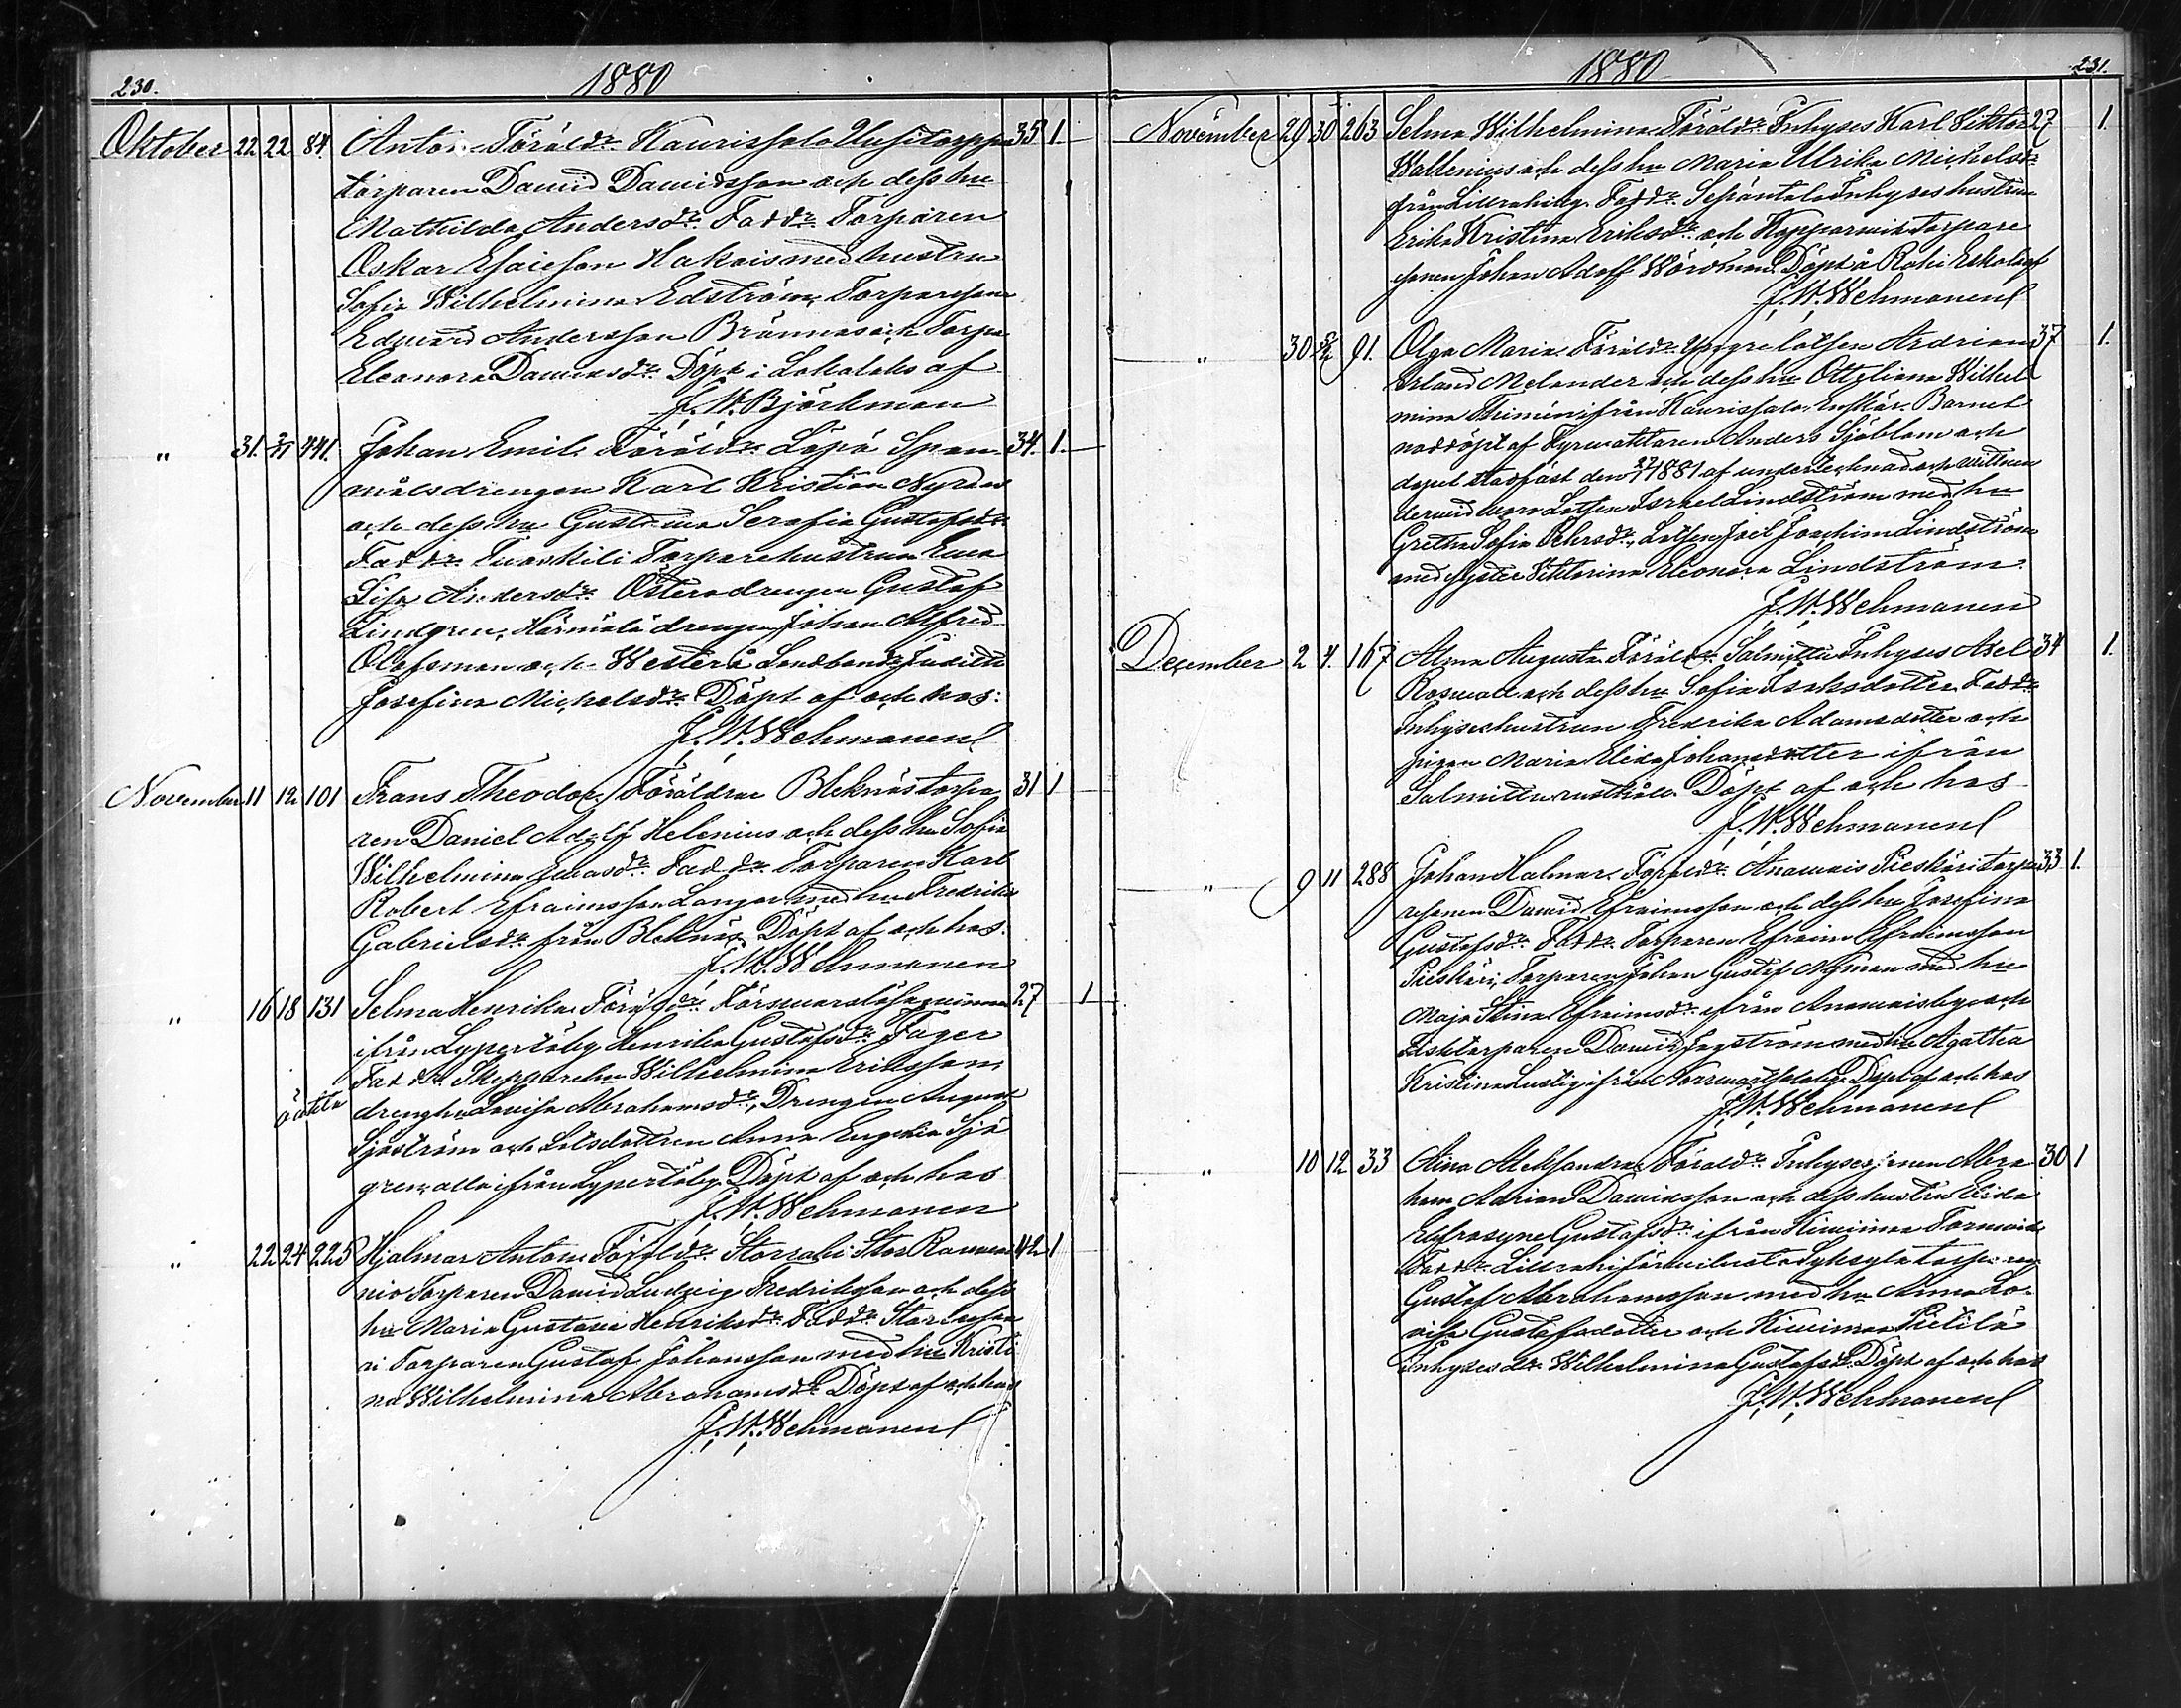 230.
1880
Oktober 22 22 84 Anton. Föräldr. Kaurissalo Uusitorppa 35 1
torparen David Davidsson och dess hu
Mathilda Andersdr. Faddr. Torparen
Oskar Esaiesson Hakais med hustru
Sofia Wilhelmina Edström, Torparesonen
Edvard Andersson Brännas och Torpa
Eleanora Davidsdr. Döpt i Lokalaks af
J. W. Björkman
" 31. 2/11 441. Johan Emil. Föräldr. Löpö Span 34. 1.
målsdrengen Karl Kristian Nyren
och dess hu Gustava Serafia Gustafsdr.
Faddr. Torparehustrun Eva
Lisa Andersdr. Österådrengen Gustaf
Lindgren, Härmälä drengen Johan Alfred
Olofsman och Westerå Landbondr Judith
Josefina Michelsdr. Döpt af och hos:
J. W. Wehmanen
November 11 12 101 Frans Theodor. Föräldrar Bleknäs torpa 31 1
ren Daniel Adolf Helenius och dess hu Sofia
Wilhelmina Faddr. Torparen Karl
Robert Efraimsson Langar med hu Fredrika
Gabrielsdr från Bleknäs. Döpt af och hos.
J. W. Wehmanen
" 16 18 131 Selma Henrika. Föräldr: Försvarslösa qvinnan 27 1
ifrån Lypertöby Henrika Gustafsdr Fager
Faddr. Skepparehu Wilhelmina Eriksson
oäkta drenghu Lovisa Abrahamsdr, Drengen August
Sjöström och Lotsdottren Anna Eugenia Sjö
gren, alla ifrån Lypertöby. Döpt af och hos
J. W. Wehmanen
" 22 24 225 Hjalmar Anton. Föräldr. Storrahi Stor
Torparen David Ludvig Fredriksson och dess 42 1
hu Maria Gustava Henriksdr. Faddr.
ri Torparen Gustaf Johansson med hu Kristi
na Wilhelmina Abrahamsdr. Döpt af och hos
J. W. Wehmanen
1880
231.
November 29 30 263 Selma Wilhelmina. Föräldr. Inhyses Karl Viktor 27 1.
Wallenius och dess hu Maria Ulrika Michelsdr
från Lillrahiby. Faddr. Seppäntalo Inhyseshustrun
Erika Kristina Eriksdr och Kopparvik torpare
sonen Johan Adolf Wördman. Döpt å Rahi Eskola af
J. W. Wehmanen
" 30 5/12 91. Olga Maria. Föräldr. Yngre lotsen Andrian 37 1.
Erland Melander och dess hu Ottiliana Wilhel
mina ifrån Kaurissalo Enskär. Barnet
nöddöpt af Fyrvaktaren Anders Sjöblom och
dopet stadfäst den 1881 af undertecknad och vittnen
dervid voro Lotsen Israel Lindström med hu
Gretha Sofia Lotsen Joel Joachim Lindström
med syster Viktorina Eleonora Lindström.
J. W. Wehmanen
December 2 4. 167 Alma Augusta. Föräldr. Salmittu Inhyses Axel 34 1.
Rosvall och dess hu Sofia Isaksdotter. Faddr.
Inhyseshustrun Fredrika Adamsdotter och
pigan Maria Elida Johansdotter ifrån
Salmittu rusthåll. Döpt af och hos
J. W. Wehmanen
" 9 11 288 Johan Halmar. Föräldr. Anavais Pieskäri torpa 33 1.
resonen David Efraimsson och dess hu Josefina
Gustafsdr. Faddr. Torparen Efraim Efraimsson
Pieskäri, Torparen Johan Gustaf Nyman med hu
Maja Stina Efraimsdr. ifrån Anavaisby och
torparen David Engström med hu Agatha
Kristina Lustig ifrån Norrvartsaloby. Döpt af och hos
J. W. Wehmanen
" 10 12 33 Aina Aleksandra. Föräldr. Inhysessonen Abra 30 1
ham Adrian Davidsson och dess hustru Elida
Eufrosyne Gustafsdr ifrån Kivimaa
Faddr. Lillrahi torparen
Gustaf Abrahamsson med hu Anna Lo
visa Gustafsdotter och Kivimaa Pietilä
Inhysesdr. Wilhelmina Gustafsdr. Döpt af och hos
J. W. Wehmanen